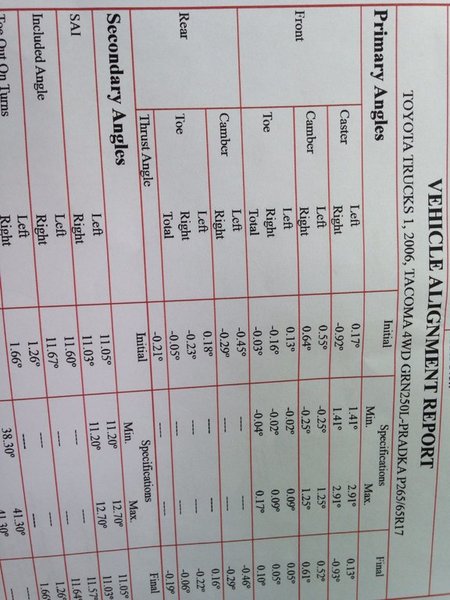 VEHICLE ALIGNMENT REPORT
TOYOTA TRUCKS 1, 2006, TACOMA 4WD GRN250L-PRADKA P265/65R17
Primary Angles Initial Specifications Final
Min. Max.
Front Caster Left 0.17° 1.41° 2.91° 0.13°
Right -0.92° 1.41° 2.91° -0.93°
Camber Left 0.55° -0.25° 1.25° 0.52°
Right 0.64° -0.25° 1.25° 0.61°
Toe Left 0.13° -0.02° 0.09° 0.05°
Right -0.16° -0.02° 0.09° 0.05°
Total -0.03° -0.04° 0.17° 0.10°
Rear Camber Left -0.45° ---- ---- -0.46°
Right -0.29° ---- ---- -0.29°
Toe Left 0.18° ---- ---- 0.16°
Right -0.23° ---- ---- -0.22°
Total -0.05° ---- ---- -0.06°
Thrust Angle -0.21° ---- ---- -0.19°
Secondary Angles Initial Specifications Final
Min. Max.
SAI Left 11.05° 11.20° 12.70° 11.05°
Right 11.03° 11.20° 12.70° 11.03°
Included Angle Left 11.60° ---- ---- 11.57°
Right 11.67° ---- ---- 11.64°
Toe Out On Turns Left 1.26° ---- ---- 1.26°
Right 1.66° ---- ---- 1.66°
38.30° 41.30°